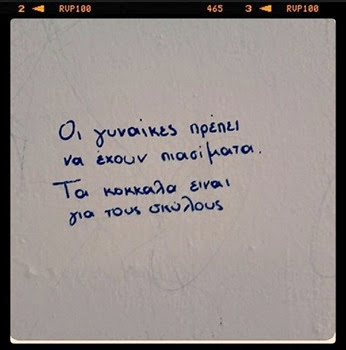 2 ◄ RVP100 465 3 ◄ RVP100
Οι γυναίκες πρέπει
να έχουν πιασίματα.
Τα κοκκαλα ειναι
για τους σκύλους